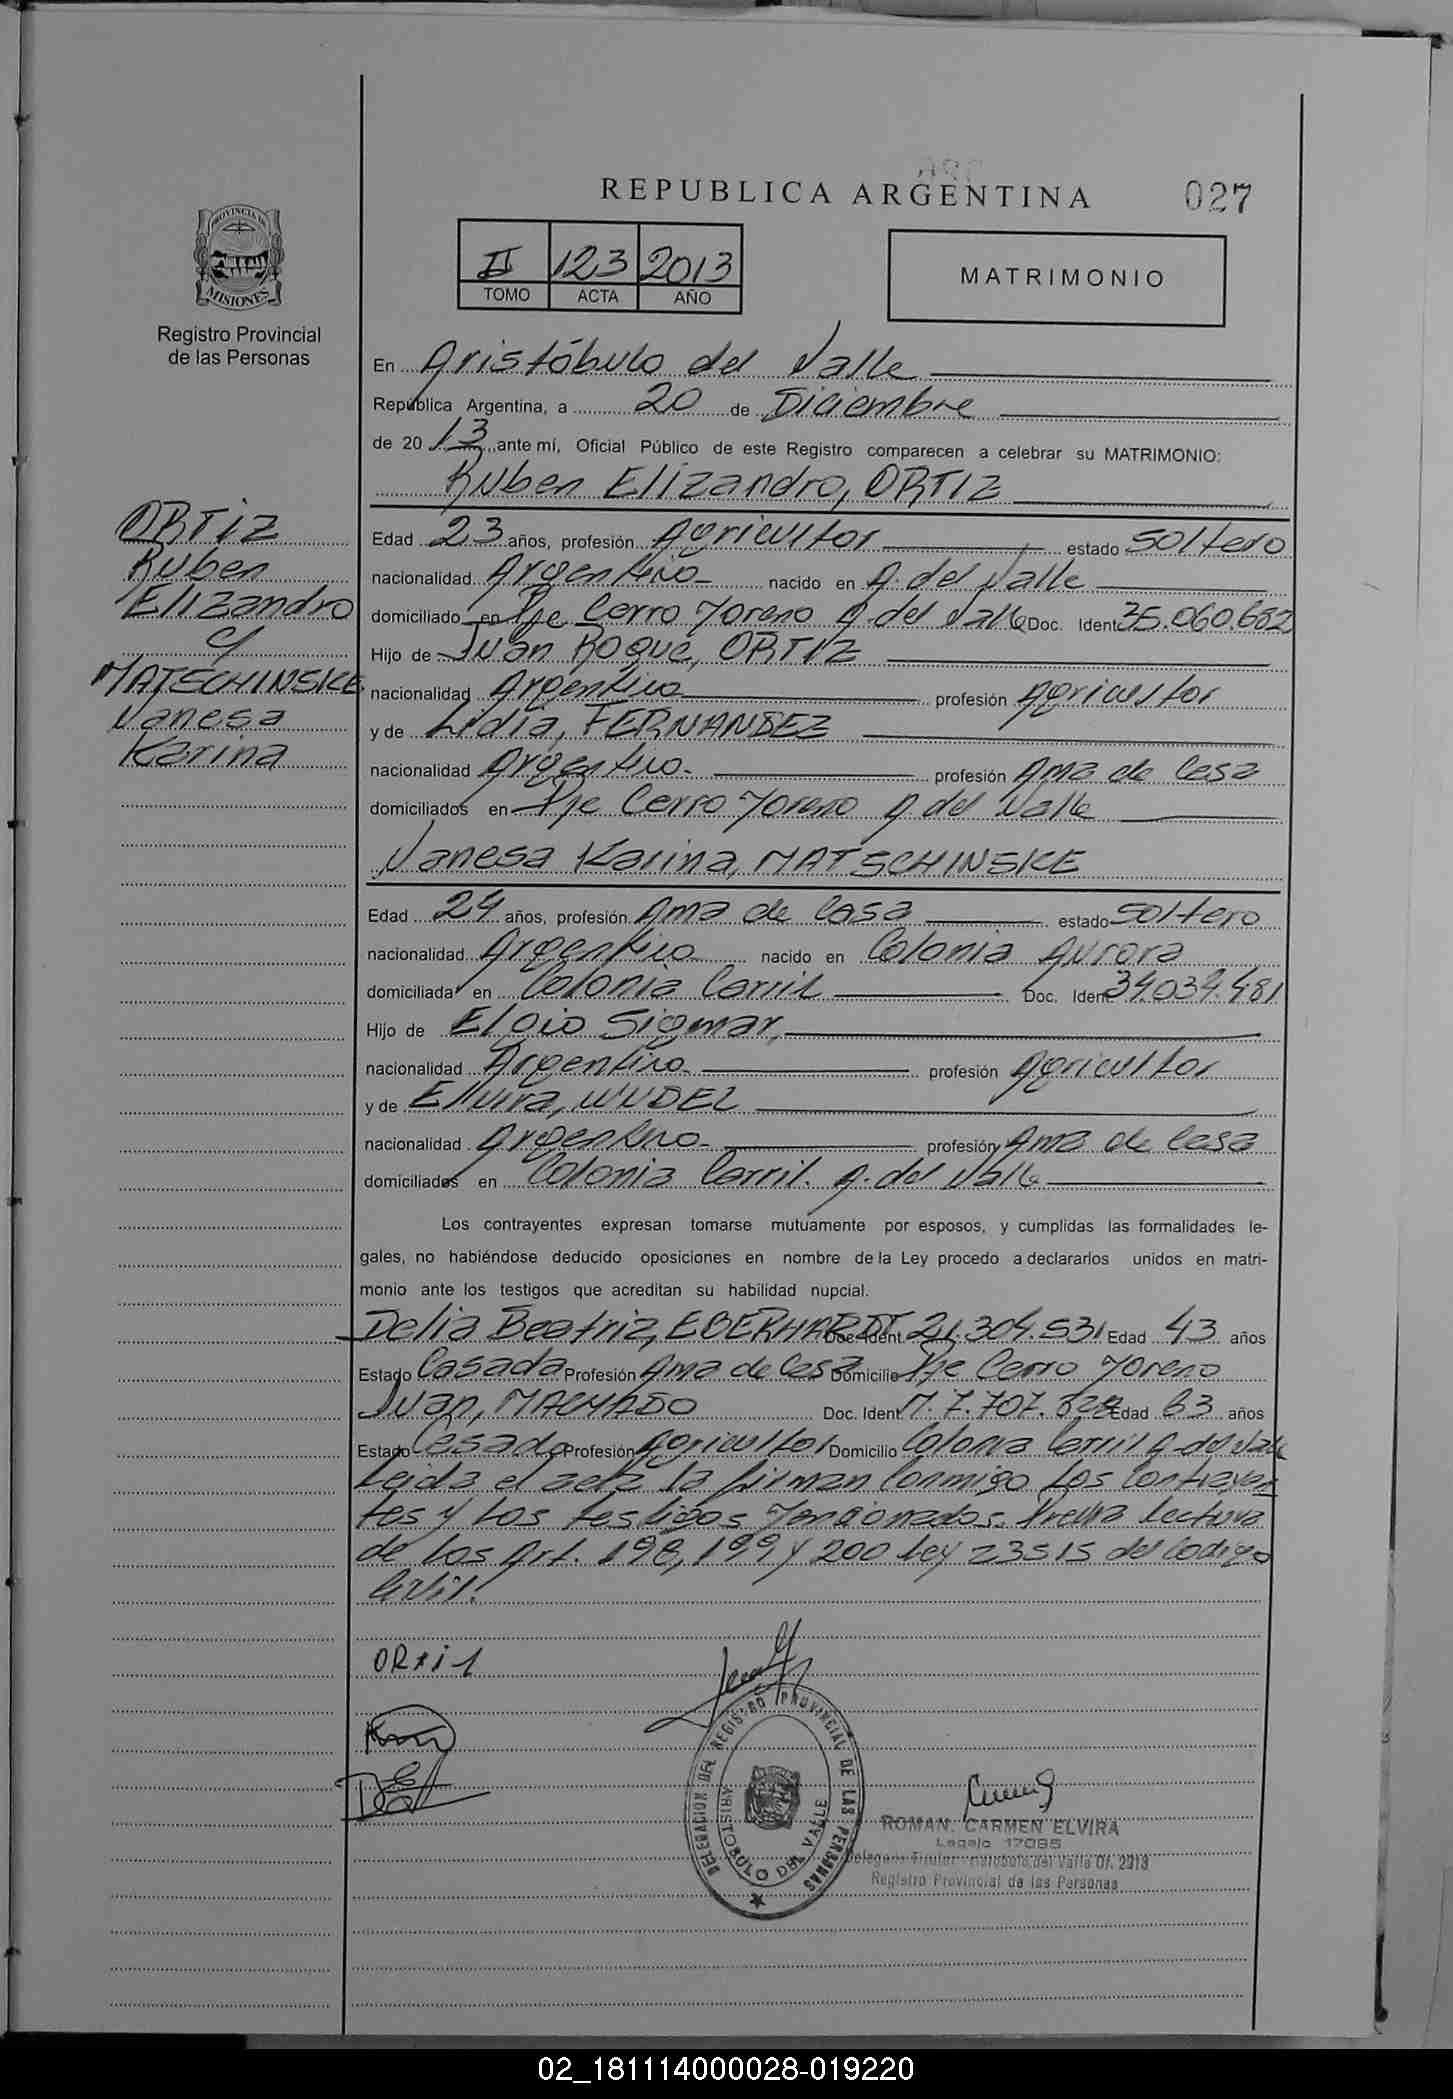 REPUBLICA ARGENTINA 027
PROVINCIA DE MISIONES
Registro Provincial
de las Personas
II 123 2013
TOMO ACTA AÑO
MATRIMONIO
En Aristóbulo del Valle
República Argentina, a 20 de Diciembre
de 20 13 ante mí, Oficial Público de este Registro comparecen a celebrar su MATRIMONIO:
Ruben Elizandro, ORTIZ
ORTIZ
Ruben
Elizandro
c/
MATSCHINSKE
Vanesa
Karina
Edad 23 años, profesión Agricultor estado soltero
nacionalidad Argentino nacido en A. del Valle
domiciliado en Pje Cerro Moreno A. del Valle Doc. Ident. 35.060.682
Hijo de Juan Roque, ORTIZ
nacionalidad Argentino profesión Agricultor
y de Lidia, FERNANDEZ
nacionalidad Argentino profesión Ama de Casa
domiciliados en Pje Cerro Moreno A. del Valle
Vanesa Karina, MATSCHINSKE
Edad 24 años, profesión Ama de Casa estado soltero
nacionalidad Argentino nacido en Colonia Aurora
domiciliada en Colonia Carril Doc. Ident. 34.034.481
Hijo de Elgio Sigmar,
nacionalidad Argentino profesión Agricultor
y de Elvira, WUDEL
nacionalidad Argentino profesión Ama de Casa
domiciliados en Colonia Carril. A. del Valle
Los contrayentes expresan tomarse mutuamente por esposos, y cumplidas las formalidades le-
gales, no habiéndose deducido oposiciones en nombre de la Ley procedo a declararlos unidos en matri-
monio ante los testigos que acreditan su habilidad nupcial.
Delia Beatriz, EBERHARDT Doc. Ident. 21.304.531 Edad 43 años
Estado Casada Profesión Ama de Casa Domicilio Pje Cerro Moreno
Juan, MACHADO Doc. Ident. M. 7.707.828 Edad 63 años
Estado Casado Profesión Agricultor Domicilio Colonia Carril A. del Valle
Leida el acta la firman Conmigo los Contrayen
tes y los testigos Mencionados. Previa lectura
de los Art. 198, 199 y 200 Ley 23515 del Codigo
Civil.
ORtiz
DELEGACION DEL REGISTRO PROVINCIAL DE LAS PERSONAS
ARISTOBULO DEL VALLE
ROMAN, CARMEN ELVIRA
Legajo 17085
Delegada Titular Aristobulo del Valle Of. 2213
Registro Provincial de las Personas
02_181114000028-019220